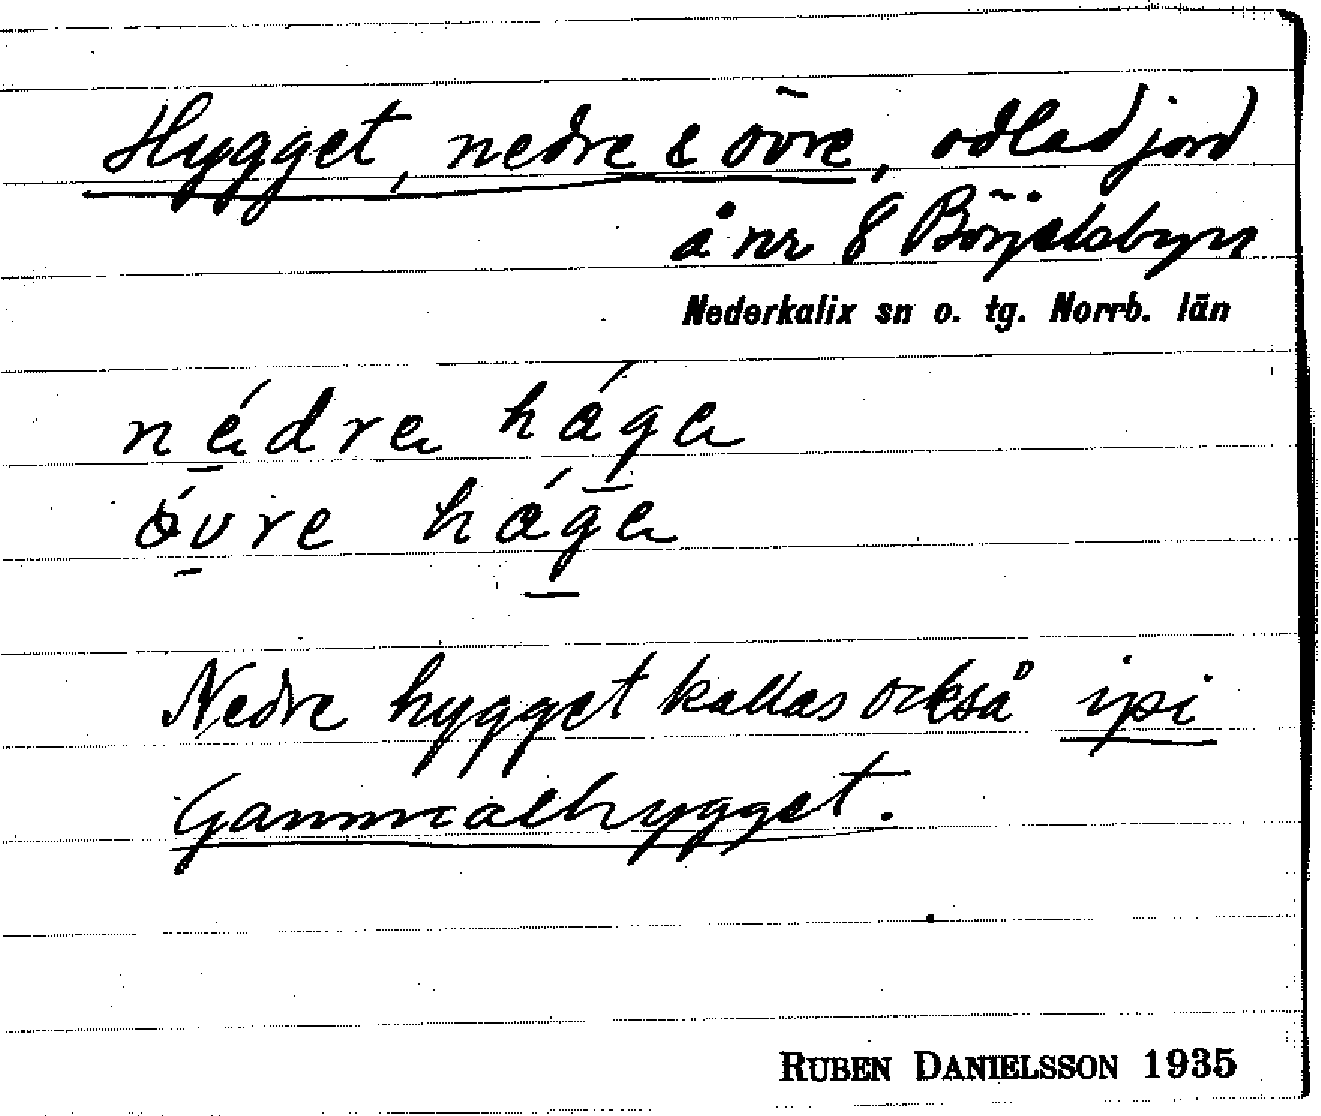 Hygget, nedre & övre, odlad jord
å nr 8 Börjelsbyn
Nederkalix sn o. tg. Norrb. län
nédre háge
övre háge
Nedre hygget kallas också
Gammalhygget.
RUBEN DANIELSSON 1935